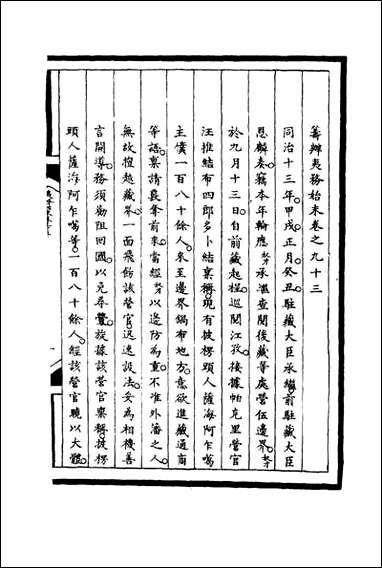 籌辦夷務始末卷之九十三
同治十三年。甲戌。正月。癸丑。駐藏大臣承繼。前駐藏大臣
恩麟奏。竊本年輪應奴才承繼查閱後藏等處營伍邊界。奴才
於九月十三日。自前藏起程。巡閱江孜。後據帕克里營官
汪推結布四郎多卜結稟稱。現有披楞頭人薩海阿乍噶
主僕一百八十餘人。來至邊界鍋布地方。意欲進藏通商
等語。稟請裁奪前來。當經奴才以邊防為重。不准外藩之人。
無故擅越藏界。一面飛飭該營官迅速設法。妥為相機善
言開導。務須勸阻回國。以免尋釁。旋據該營官稟稱。披楞
頭人薩海阿乍噶等。一百八十餘人。經該營官曉以大體。